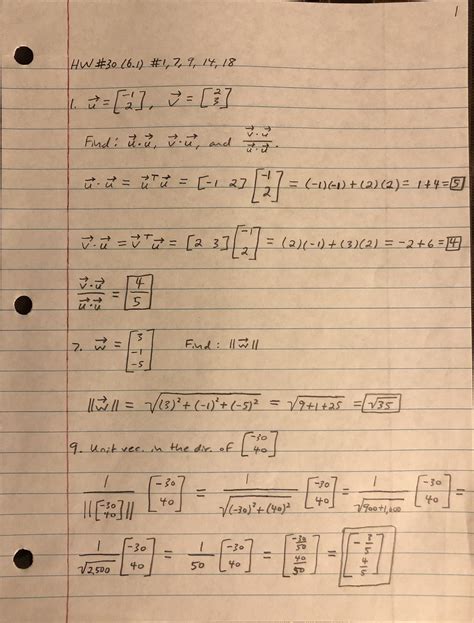 1
HW #30 (6.1) #1, 7, 9, 14, 18
1. u⃗ = [-1 2], v⃗ = [2 3]
Find: u⃗·u⃗, v⃗·u⃗, and v⃗·u⃗/u⃗·u⃗.
u⃗·u⃗ = u⃗ᵀu⃗ = [-1 2][-1 2] = (-1)(-1)+(2)(2) = 1+4 = 5
v⃗·u⃗ = v⃗ᵀu⃗ = [2 3][-1 2] = (2)(-1)+(3)(2) = -2+6 = 4
v⃗·u⃗/u⃗·u⃗ = 4/5
7. w⃗ = [3 -1 -5] Find: ||w⃗||
||w⃗|| = √(3)²+(-1)²+(-5)² = √9+1+25 = √35
9. Unit vec. in the dir. of [-30 40]
1/||[-30 40]|| [-30 40] = 1/√(-30)²+(40)² [-30 40] = 1/√900+1,600 [-30 40] =
1/√2,500 [-30 40] = 1/50 [-30 40] = [-30/50 40/50] = [-3/5 4/5]